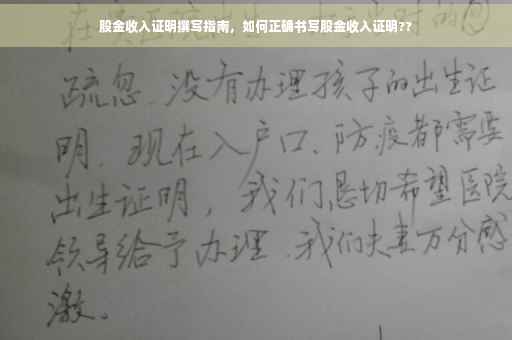 股金收入证明撰写指南，如何正确书写股金收入证明??
疏忽、没有办理孩子的出生证
明、现在入户口、防疫都需要
出生证明，我们恳切希望医院
领导给予办理、我们夫妻万分感
激。